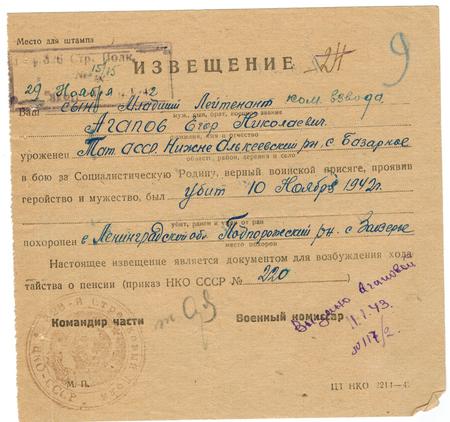 Место для штампа
Стр. Полк.
№ 15/15
ИЗВЕЩЕНИЕ
24
9
29 Ноября 42
Ваш сын Младший Лейтенант ком. взвода
муж, сын, брат, воинское звание
Агапов Егор Николаевич.
фамилия, имя и отчество
уроженец Тат АССР. Нижне Алькеевский рн. с Базарное
область, район, деревня и село
в бою за Социалистическую Родину, верный воинской присяге, проявив
геройство и мужество, был убит 10 Ноября 1942г.
убит, ранен и умер от ран
похоронен с Ленинградской обл. Подпорожский рн. с Заозерье
место похорон
Настоящее извещение является документом для возбуждения хода
тайства о пенсии (приказ НКО СССР № 220
Командир части
Военный комиссар
Агаповой
1.1.43.
№ 117/2
НКО-СССР
М. П.
ЦТ НКО 2214—4